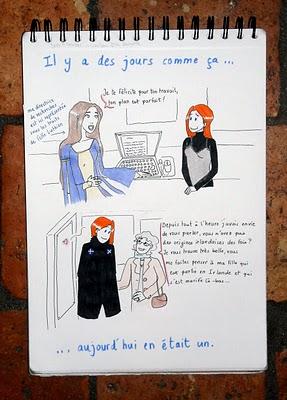 Il y a des jours comme ça...
Je te félicite pour ton travail,
ton plan est parfait!
ma directrice
de recherches
est ici représentée
sous les traits
de
Depuis tout à l'heure j'avais envie
de vous parler, vous n'avez pas
des origines irlandaises des fois?
Je vous trouve très belle, vous
me faites penser à ma fille qui
est partie en Irlande et qui
s'est mariée là-bas...
... aujourd'hui en était un.